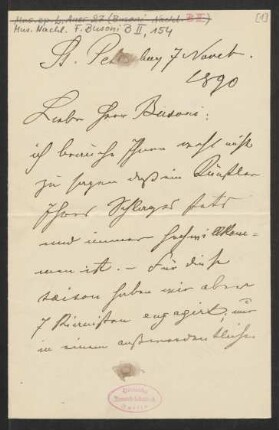 Mus. ep. L. Auer 27 (Busoni-Nachl. B II)
Mus. Nachl. F. Busoni B II, 154
[1]
St. Petersburg 7 Novet.
1890
Lieber Herr Busoni:
ich brauche Ihnen wohl nicht
zu sagen daß ein Künstler
Ihres Schlages stets
und immer hochwillkom-
men ist. – Für diese
Saison haben wir aber
7 Pianisten engagirt, nur
in einem außerordentlichen